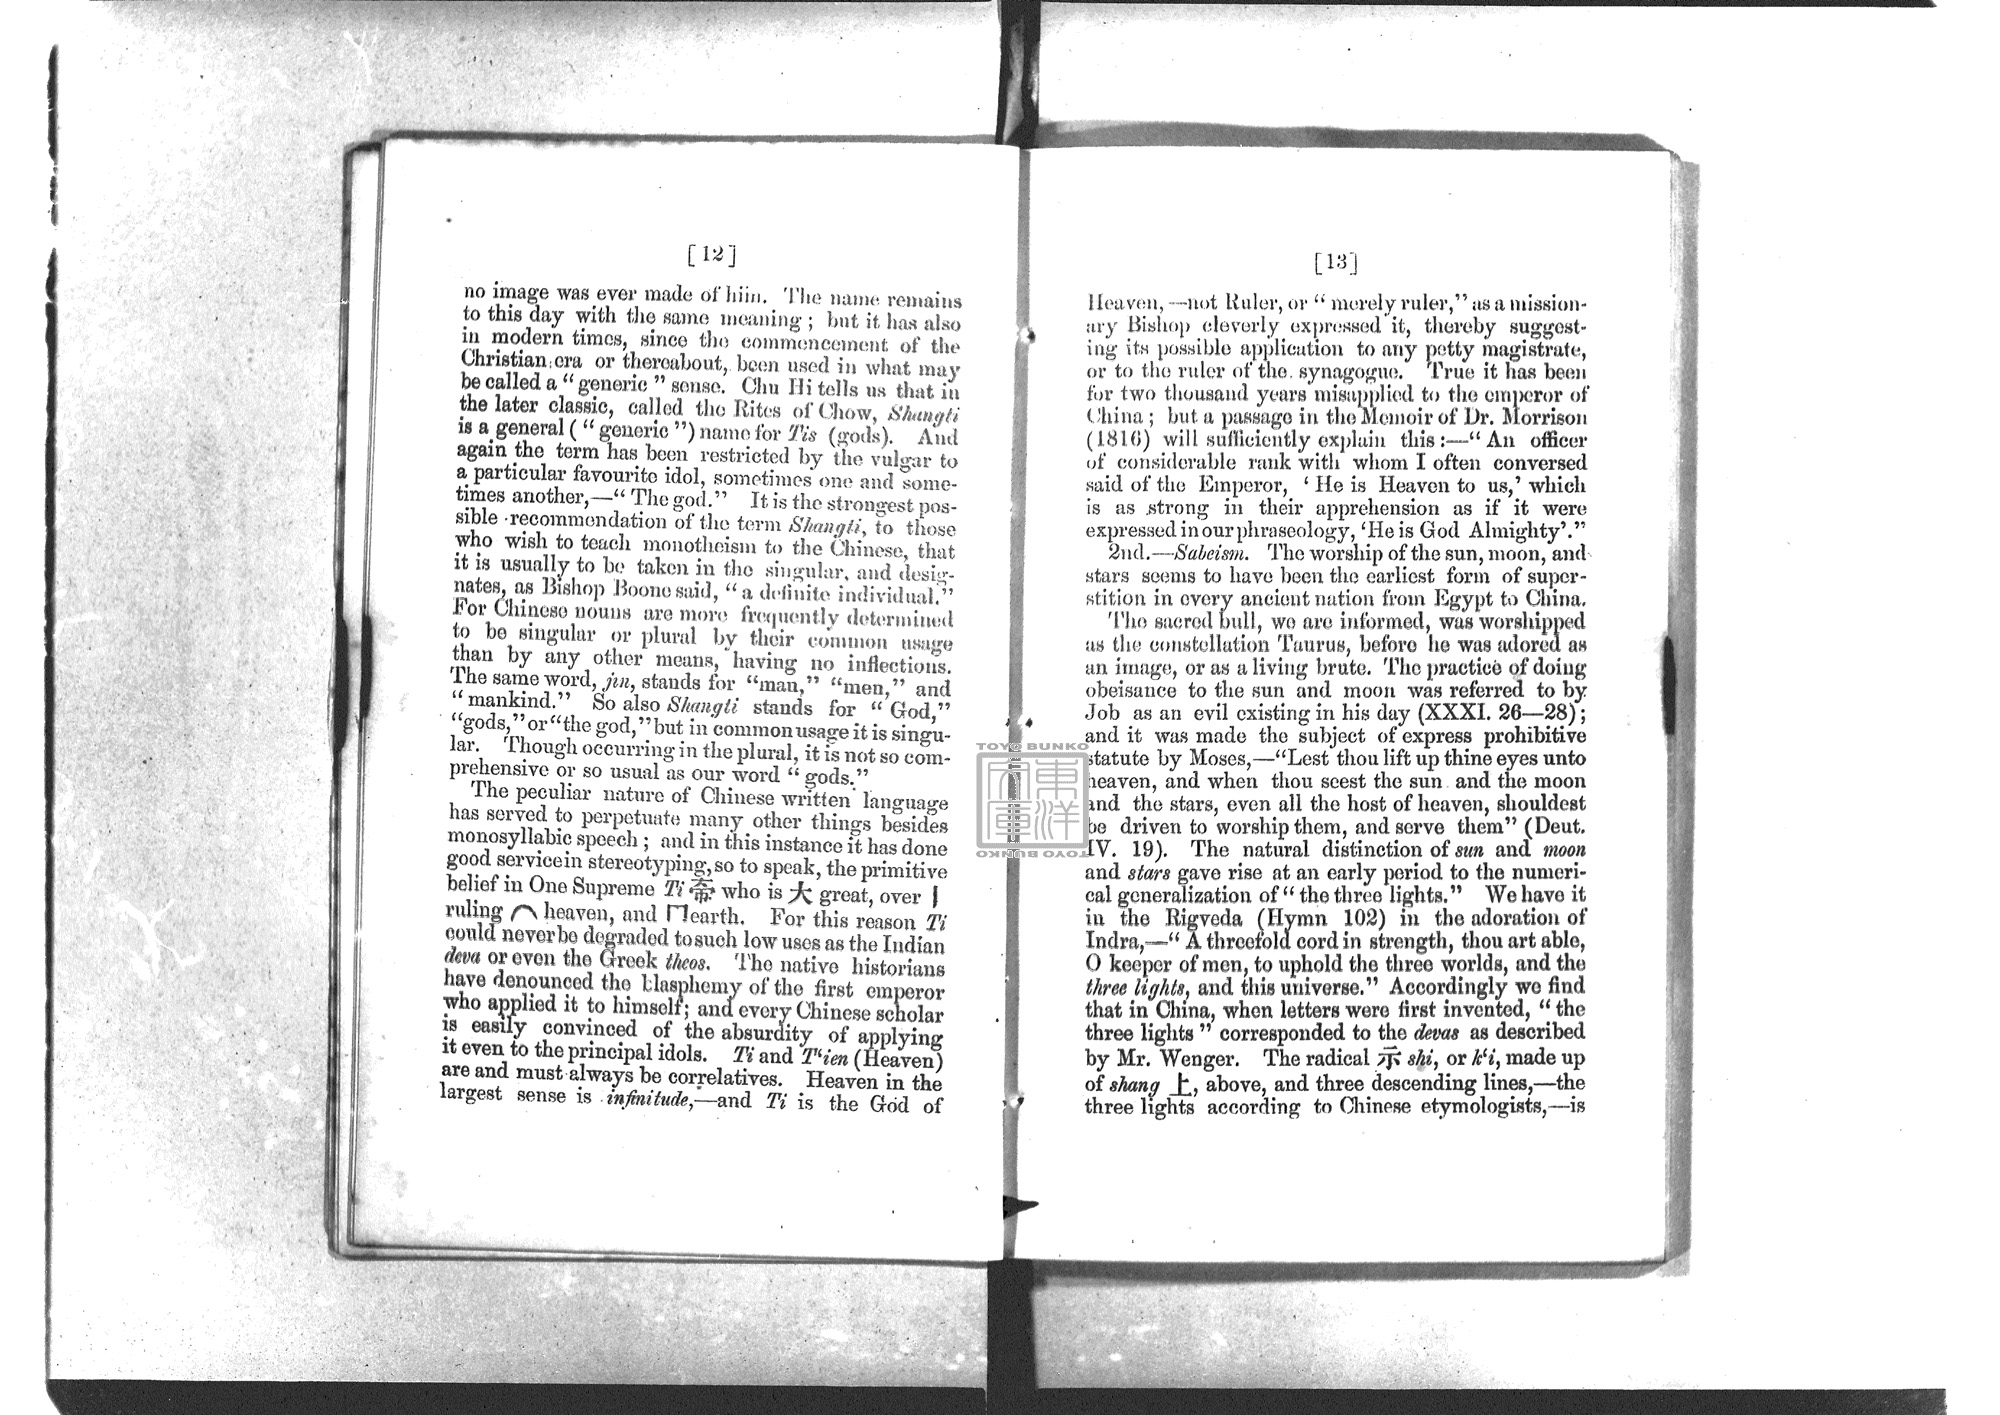 [12]
no image was ever made of him. The name remains
to this day with the same meaning; but it has also
in modern times, since the commencement of the
Christian era or thereabout, been used in what may
be called a “generic” sense. Chu Hi tells us that in
the later classic, called the Rites of Chow, Shangti
is a general (“generic”) name for Tis (gods). And
again the term has been restricted by the vulgar to
a particular favourite idol, sometimes one and some-
times another,—“The god.” It is the strongest pos-
sible recommendation of the term Shangti, to those
who wish to teach monotheism to the Chinese, that
it is usually to be taken in the singular, and desig-
nates, as Bishop Boone said, “a definite individual.”
For Chinese nouns are more frequently determined
to be singular or plural by their common usage
than by any other means, having no inflections.
The same word, jin, stands for “man,” “men,” and
“mankind.” So also Shangti stands for “God,”
“gods,” or “the god,” but in common usage it is singu-
lar. Though occurring in the plural, it is not so com-
prehensive or so usual as our word “gods.”
The peculiar nature of Chinese written language
has served to perpetuate many other things besides
monosyllabic speech; and in this instance it has done
good service in stereotyping, so to speak, the primitive
belief in One Supreme Ti 帝 who is 大 great, over |
ruling ⌒ heaven, and 冂 earth. For this reason Ti
could never be degraded to such low uses as the Indian
deva or even the Greek theos. The native historians
have denounced the blasphemy of the first emperor
who applied it to himself; and every Chinese scholar
is easily convinced of the absurdity of applying
it even to the principal idols. Ti and T‘ien (Heaven)
are and must always be correlatives. Heaven in the
largest sense is infinitude,—and Ti is the God of
[13]
Heaven,—not Ruler, or “merely ruler,” as a mission-
ary Bishop cleverly expressed it, thereby suggest-
ing its possible application to any petty magistrate,
or to the ruler of the synagogue. True it has been
for two thousand years misapplied to the emperor of
China; but a passage in the Memoir of Dr. Morrison
(1816) will sufficiently explain this:—“An officer
of considerable rank with whom I often conversed
said of the Emperor, ‘He is Heaven to us,’ which
is as strong in their apprehension as if it were
expressed in our phraseology, ‘He is God Almighty’.”
2nd.—Sabeism. The worship of the sun, moon, and
stars seems to have been the earliest form of super-
stition in every ancient nation from Egypt to China.
The sacred bull, we are informed, was worshipped
as the constellation Taurus, before he was adored as
an image, or as a living brute. The practice of doing
obeisance to the sun and moon was referred to by
Job as an evil existing in his day (XXXI. 26—28);
and it was made the subject of express prohibitive
statute by Moses,—“Lest thou lift up thine eyes unto
heaven, and when thou seest the sun and the moon
and the stars, even all the host of heaven, shouldest
be driven to worship them, and serve them” (Deut.
IV. 19). The natural distinction of sun and moon
and stars gave rise at an early period to the numeri-
cal generalization of “the three lights.” We have it
in the Rigveda (Hymn 102) in the adoration of
Indra,—“A threefold cord in strength, thou art able,
O keeper of men, to uphold the three worlds, and the
three lights, and this universe.” Accordingly we find
that in China, when letters were first invented, “the
three lights” corresponded to the devas as described
by Mr. Wenger. The radical 示 shi, or k‘i, made up
of shang 上, above, and three descending lines,—the
three lights according to Chinese etymologists,—is
TOYO BUNKO
東洋文庫
TOYO BUNKO